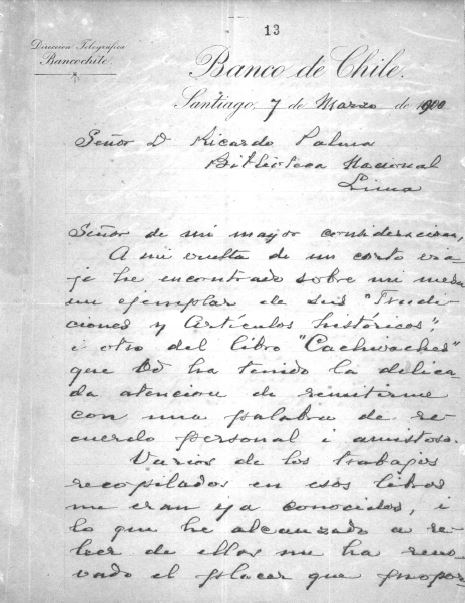 13
Direccion Telegráfica
Bancochile.
Banco de Chile.
Santiago, 7 de Marzo de 1900
Señor D Ricardo Palma
Biblioteca Nacional
Lima
Señor de mi mayor consideracion,
A mi vuelta de un corto via-
je he encontrado sobre mi mesa
un ejemplar de sus "Tradi-
ciones y Artículos históricos",
i otro del libro "Cachivaches"
que Ud ha tenido la delica-
da atencion de remitirme
con una palabra de re
cuerdo personal i amistoso.
Varios de los trabajos
recopilados en esos libros
me eran ya conocidos, i
lo que he alcanzado a re-
leer de ellos me ha reno-
vado el placer que propor